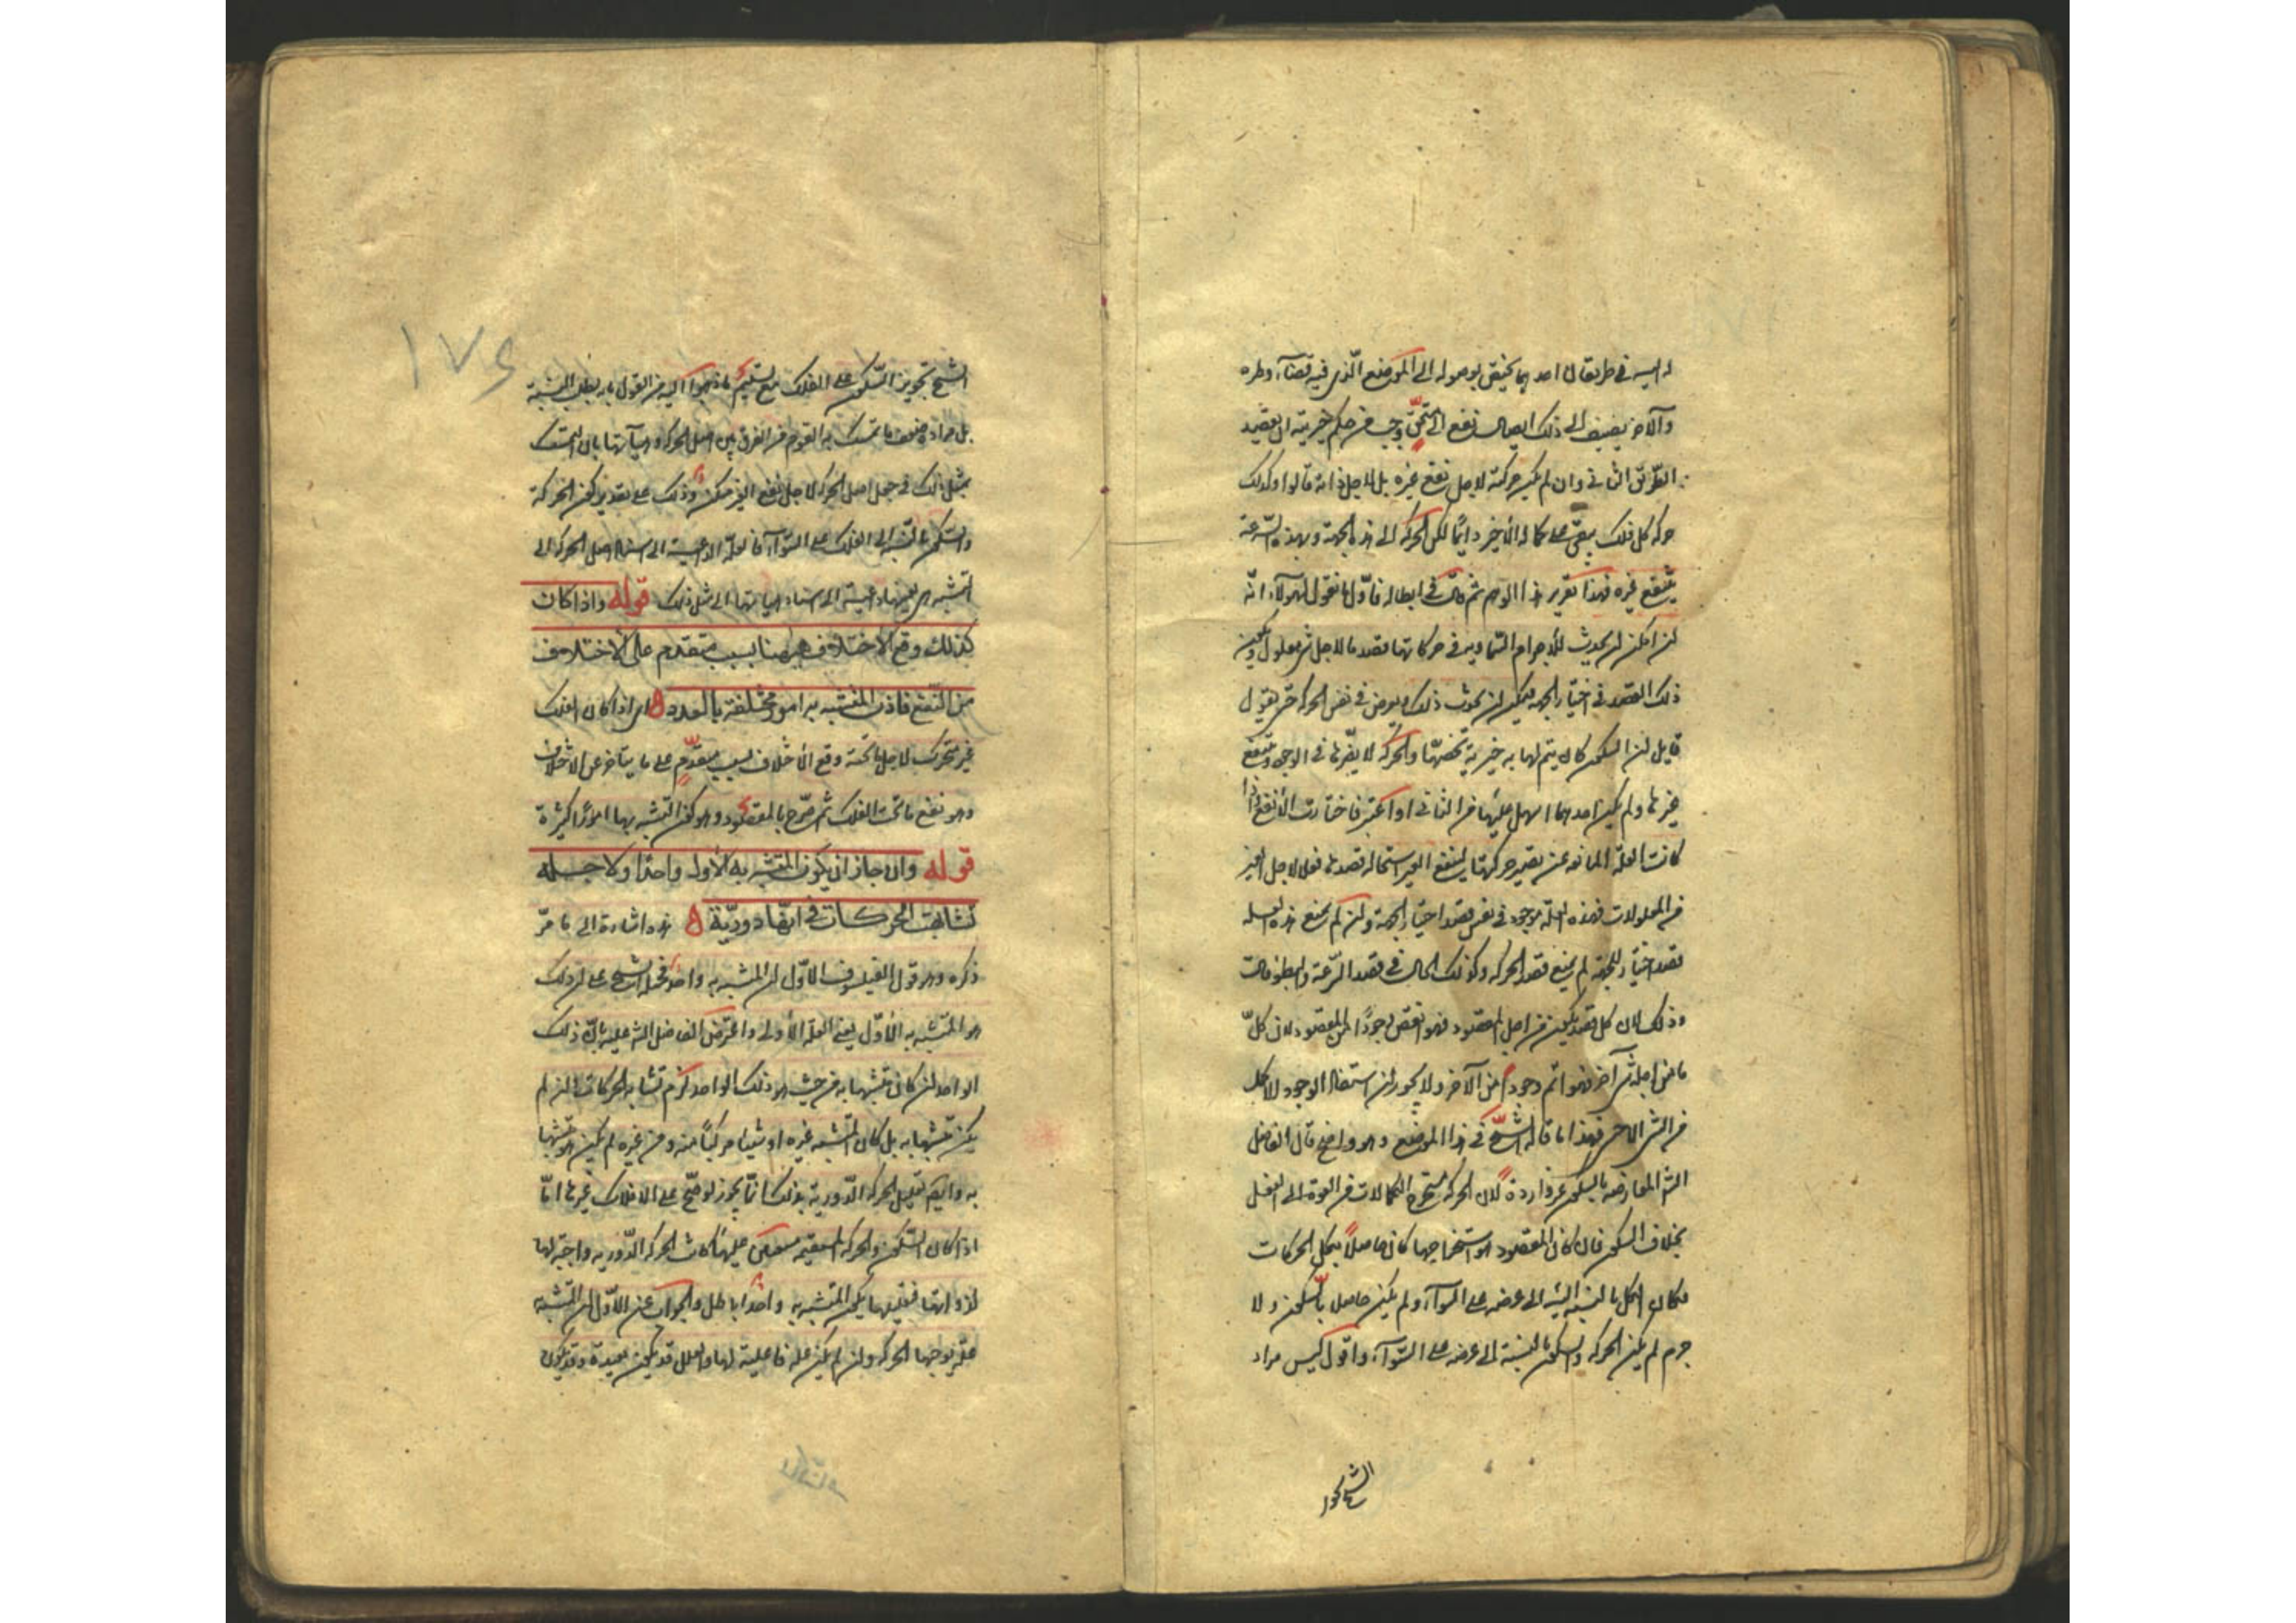 له اليه في طريقان احدهما يختص بوصوله الى الموضع الذي فيه قضاء وطره
والآخر يضيف الى ذلك ايصال نفع الى مستحق وجب في حكم خيريته ان يقصد
الطريق الثاني وان لم يكن حركته لاجل نفع غيره بل لاجل ذاته قالوا وكذلك
حركة كل فلك يبقى على كماله الأخير دائما لكن الحركة الى هذه الجهة وبهذه السرعة
ينتفع غيره فهذا تقرير هذا الوهم ثم قال في ابطاله فاول ما نقول لهولاء انه
ان امكن ان يحدث للأجرام السماوية في حركاتها قصد ما لاجل شئ معلول ويكون
ذلك القصد في اختيار الجهة فيمكن ان يحدث ذلك ويعرض في نفس الحركة حتى يقول
قايل ان السكون كان يتم لها به خيرية تخصها والحركة لا يضرها في الوجود وتنفع
غيرها ولم يكن احدهما اسهل عليها من الثاني او اعسر فاختارت الأنفع فاذا
كانت العلة المانعة عن تصيير حركتها لنفع الغير استحالة قصدها فعلا لاجل الغير
من المعلولات فهذه العلة موجودة في نفس قصد اختيار الجهة وان لم يمنع هذه العلة
قصد اختيار الجهة لم يمنع قصد الحركة وكذلك الحال في قصد السرعة والبطؤ قال
وذلك لان كل قصد يكون من اجل المقصود فهو انقص وجودا من المقصود لان كل
ما من اجله شئ آخر فهو اتم وجودا من الآخر ولا يجوز ان يستفاد الوجود الاكمل
من الشئ الاخس فهذا ما قاله الشيخ في هذا الموضع وهو واضح قال الفاضل
الشارح المعارضة بالسكون غير واردة لان الحركة مستخرج الكمالات من القوة الى الفعل
بخلاف السكون فان كان المقصود هو استخراجها كان حاصلا بكل الحركات
فكان الكل بالنسبة الى غرضه على السواء ولم يكن حاصلا بالسكون ولا
جرم لم يكن الحركة والسكون بالنسبة الى غرضه على السواء واقول ليس مراد
الشيخ تجويز
١٧٤
الشيخ تجويز السكون على الفلك مع تسليم ما ذهبوا اليه من القول بانه يطلب التشبه
بل مراده ضعف ما تمسك به القوم من الفرق بين اصل الحركة وهيآتها بان التمسك
بمثل ذلك في جعل اصل الحركة لاجل نفع الغير ممكن وذلك على تقدير كون الحركة
والسكون بالنسبة الى الفلك على السواء فالعلة الداعية الى اسناد اصل الحركة الى
التشبه هي بعينها داعية الى اسناد هيآتها الى مثل ذلك قوله واذا كان
كذلك وقع الاختلاف ههنا بسبب متقدم على الاختلاف
من النفع فاذن المتشبه به امور مختلفة بالعدد ه اي اذا كان الفلك
غير متحرك لاجل ما تحته وقع الأختلاف بسبب متقدم على ما يتأخر عن الاختلاف
وهو نفع ما تحت الفلك ثم صرح بالمقصود وهو كون المتشبه بها امورا كثيرة
قوله وان جاز ان يكون المتشبه به الأول واحدا ولاجله
تشابهت الحركات في انها دورية ه هذه اشارة الى ما مر
ذكره وهو قول الفيلسوف الاول ان المتشبه به واحد فحمل الشيخ على ان ذلك
هو المتشبه به الأول يعني العلة الأولى واعترض الفاضل الشارح عليه بان ذلك
الواحد ان كان متشبها به من حيث هو ذلك الواحد لزم تشابه الحركات وان لم
يكن متشبها به بل كان المتشبه غيره او شيئا مركبا منه ومن غيره لم يكن هو متشبها
به وايضا تعليل الحركة الدورية بذلك انما يجوز لو صح على الافلاك غيرها اما
اذا كان السكون والحركة المستقيمة ممتنعين عليها كانت الحركة الدورية واجبة لها
لذواتها فتعليلها بكون المتشبه به واحدا باطل والجواب عن الاول ان المتشبه
علة بوجه ما للحركة وان لم يكن علة فاعلية لها والعلل قد يكون بعيدة وقد يكون